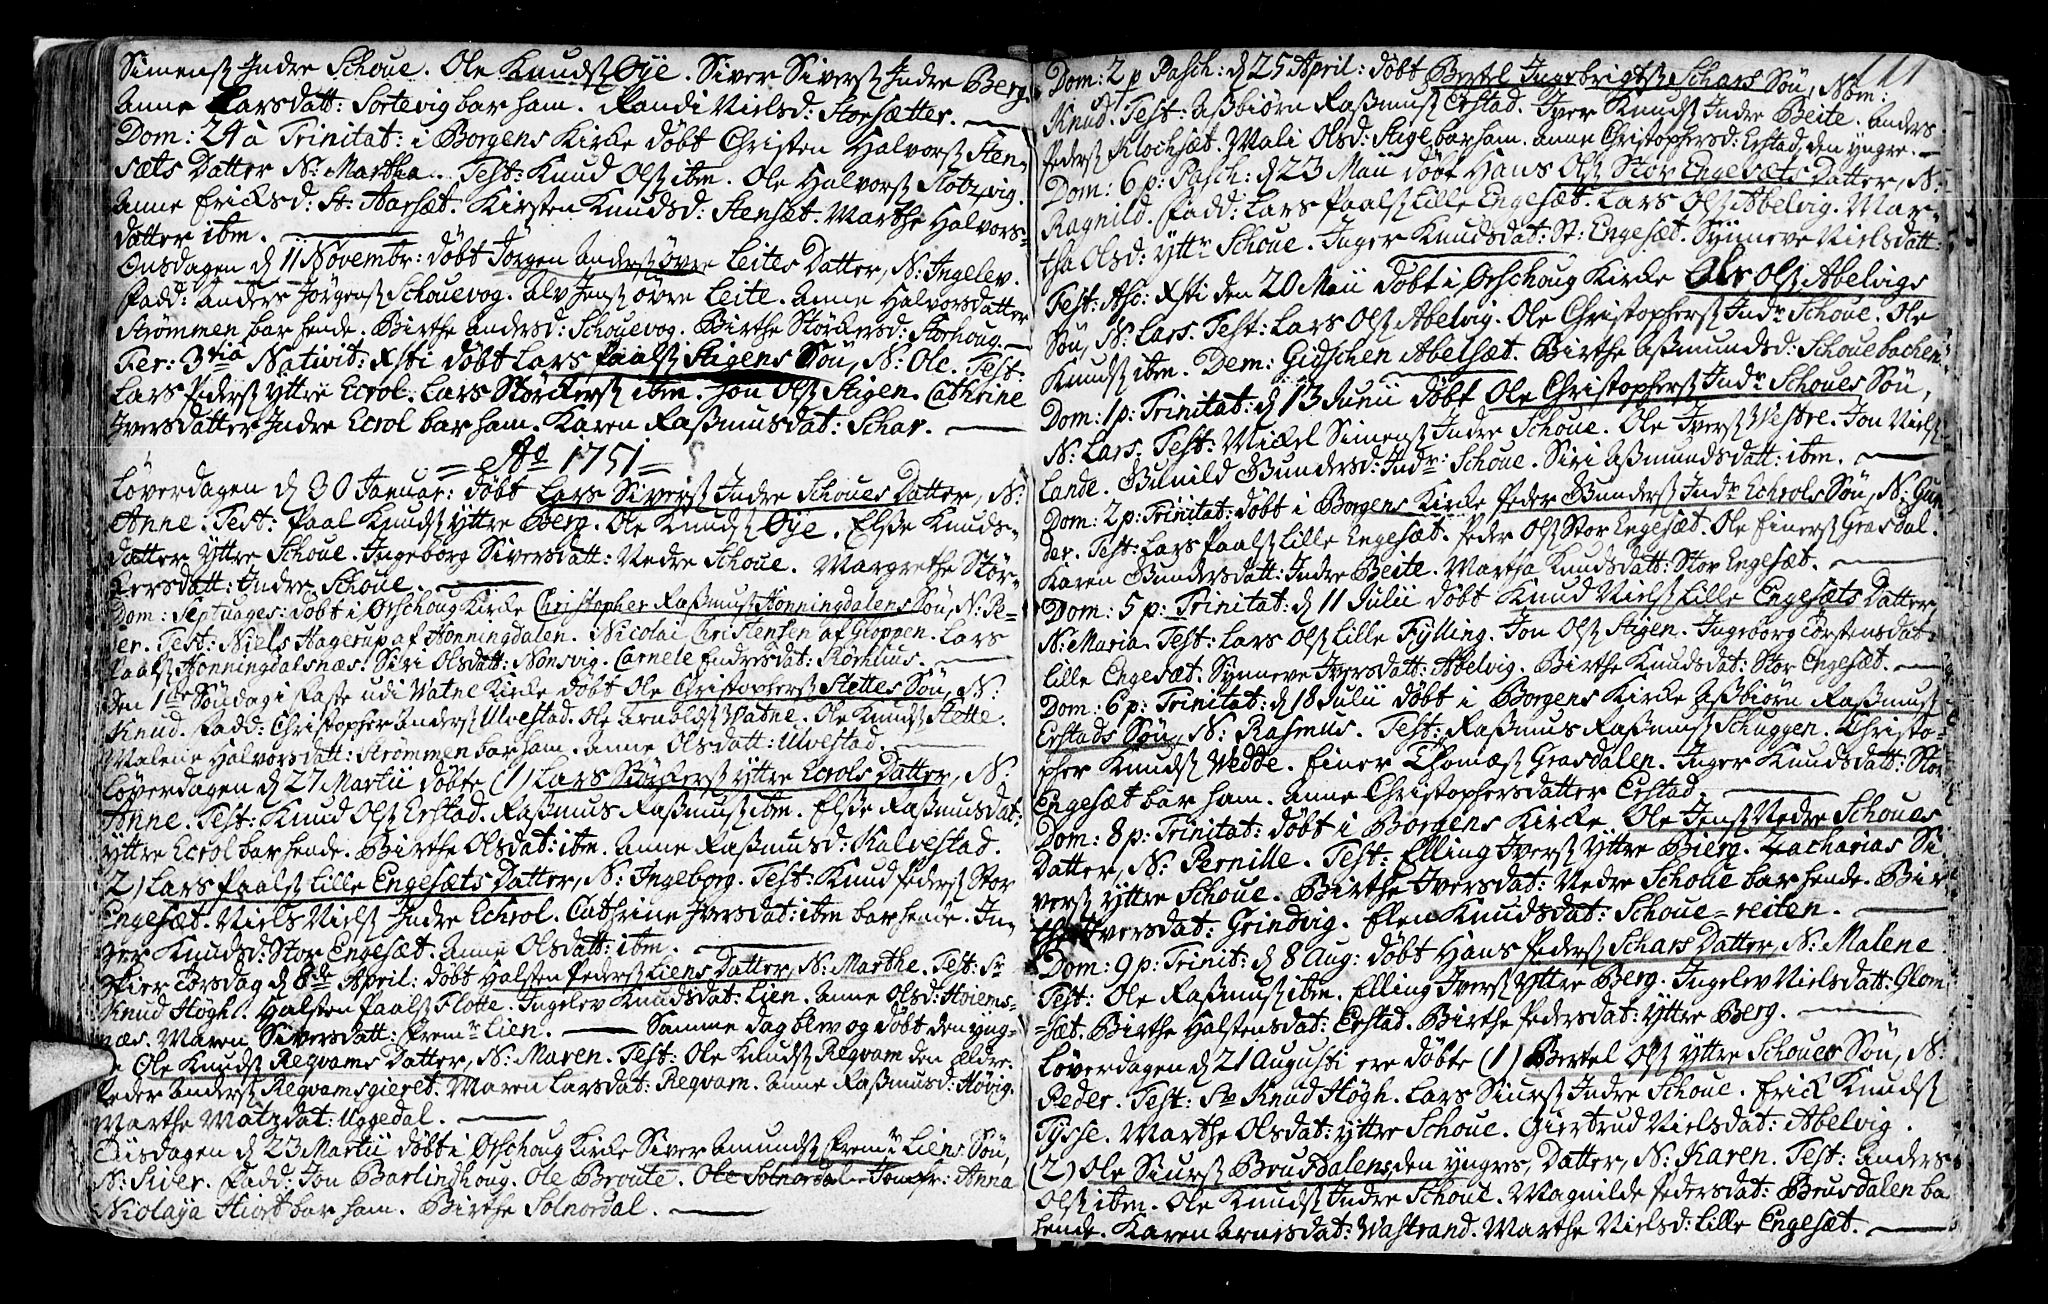 Simensß Indre Schoue. Ole Knudsß Øÿe. Siver Siversß Indre Berg.
Anne Larsdatt: Sortevig bar ham. Randi Nielsd: Storsætter.
Dom: 24 à Trinitat: i Borgens Kirke døbt Christen Halvorsß Sten-
sæts Datter N: Martha. Test: Knud Olsß ibm. Ole Halvorsß Flotzvig.
Anne Ericksd: St: Aarsæt. Kirsten Knudsd: Stensæt. Marthe Halvors-
datter ibm.
Onsdagen d 11 Novembr: døbt Jörgen Andersß øvre Leites Datter, N: Ingelev.
Fadd: Anders Jörgensß Schouevog. Alv Jensß øvre Leite. Anne Halvorsdatter
Strömmen bar hende. Birthe Andersd: Schouevog. Birthe Störkersd: Storhoug.
Fer: 3tia Nativit: Xsti döbt Lars Paalsß Stigens Søn, N: Ole. Test:
Lars Pedersß Yttre Ecrol. Lars Störckersß ibm. Jon Olsß Stigen. Cathrine
Iversdatter Indre Ecrol bar ham. Karen Raßmusdat: Schar.
= Ao 1751 =
Löverdagen d 30 Januar: døbt Lars Siversß Indre Schoues Datter, N:
Anne. Test: Paal Knudsß Yttre Berg. Ole Knudsß Øÿe. Elsße Knuds-
datter Yttre Schoue. Ingeborg Siversdatt: Nedre Schoue. Margrethe Stör-
kersdatt: Indre Schoue.
Dom: Septuages: døbt i Ørschoug Kirke Christopher Raßmusß Honningdalens Søn, N: Pe-
der. Test: Niels Hagerup af Honningdalen. Nicolai Christensen af Gloppen. Lars
Paalsß Honningdalsnæs. Siri Olsdatt: Nonsvig. Carnele Endresdat: Römhus.
Den 1te Söndag i Faste udi Vatne Kirke døbt Ole Christophersß Stettes Søn, N:
Knud. Fadd: Christopher Andersß Ulvestad. Ole Arnoldsß Vatne. Ole Knudsß Stette.
Malene Halvorsdatt: Strömmen bar ham. Anne Olsdatt: Ulvestad.
Löverdagen d 27 Martii døbte (1) Lars Störkersß Yttre Ecrols Datter, N:
Anne. Test: Knud Olsß Erstad. Raßmus Raßmusß ibm. Elsße Raßmusdat:
Yttre Ecrol bar hende. Birthe Olsdat: ibm. Anne Raßmusd: Kalvestad.
2) Lars Paalsß Lille Engesæts Datter, N: Ingeborg. Test: Knud Pedersß Stor
Engesæt. Niels Nielsß Indre Echrol. Cathrine Iversdat: ibm bar hende. In-
ger Knudsd: Stor Engesæt. Anne Olsdatt: ibm.
Skier Torsdag d 8de April: døbt Halsten Pedersß Liens Datter, N: Marthe. Test: Sr
Knud Högh. Halsten Paalsß Flotte. Ingelev Knudsdat: Lien. Anne Olsd: Hoiems-
næs. Maren Siversdatt: Frem Lien. Samme dag blev og døbt den Yng-
e Ole Knudsß Reqvams Datter, N: Maren. Test: Ole Knudsß Reqvam den ældre.
Peder Andersß Reqvamsgieret. Maren Larsdat: Reqvam. Anne Raßmusd: Hövig.
Marthe Matzdat: Uggedal.
Tiisdagen d 23 Martii døbt i Ørschoug Kirke Siver Amundsß Frem Liens Søn,
N: Sider. Fadd: Jon Barlindhoug. Ole Broute. Ole Solnordal. Jomfr: Anna
Nicolaÿa Hiort bar ham. Birthe Solnordal.
111
Dom: 2 p Pasch: d 25 April: døbt Bertel Ingebrigtsß Schars Søn, Nom:
Knud. Test: Aßbiørn Raßmusß Erstad. Iver Knudsß Indre Beite. Anders
Pedersß Klochsæt. Mali Olsd: Stige bar ham. Anne Christophersd: Erstad, den Yngre.
Dom: 6 p: Pasch: d 23 Maii døbt Hans Olsß Stor Engesæts Datter, N:
Ragnild. Fadd: Lars Paalsß Lille Engesæt. Lars Olsß Abelvig. Mar-
tha Olsd: Yttr Schoue. Inger Knudsdat: St: Engesæt. Synneve Nielsdatt:
Fest: Asc: Xsti den 20 Maii døbt i Ørschoug Kirke Ole Olsß Abelvigs
Søn, N: Lars. Test: Lars Olsß Abelvig. Ole Christophersß Indr Schoue. Ole
Knudsß ibm. Dem: Gidschen Abelsæt. Birthe Aßmundsd: Schouebachen.
Dom: 1 p: Trinitat: d 13 Junii døbt Ole Christophersß Indr Schoues Søn,
N: Lars. Test: Mickel Simensß Indre Schoue. Ole Iversß Vestre. Jon Nielsß
Lande. Gunild Gundersd: Indr: Schoue. Siri Aßmundsdatt: ibm.
Dom: 2 p: Trinitat: døbt i Borgens Kirke Peder Gundersß Indr Echrols Søn, N: Gun-
der. Test: Lars Paalsß Lille Engesæt. Peder Olsß Stor Engesæt. Ole Einersß Grasdal.
Karen Gundersdatt: Indre Beite. Martha Knudsdatt: Stor Engesæt.
Dom: 5 p: Trinitat: d 11 Julii døbt Knud Nielsß Lille Engesæts Datter,
N: Maria. Test: Lars Olsß Lille Fylling. Jon Olsß Stigen. Ingeborg Torstensdat:
Lille Engesæt. Synneve Iversdatt: Abelvig. Birthe Knudsdat: Stor Engesæt.
Dom: 6 p: Trinitat: d 18 Julii døbt i Borgens Kirke Aßbiørn Raßmusß
Erstads Søn, N: Rasmus. Test: Raßmus Raßmusß Schuggen. Christo-
pher Knudsß Vedde. Einer Thomæsß Grasdalen. Inger Knudsdatt: Stor
Engesæt bar ham. Anne Christophersdatter Erstad.
Dom: 8 p: Trinitat: døbt i Borgens Kirke Ole Jensß Nedre Schoues
Datter, N: Pernille. Test: Elling Iversß Yttre Bierg. Zacharias Si-
versß Yttre Schoue. Birthe Iversdat: Nedre Schoue bar hende. Bir-
the Iversdat: Grindvig. Elen Knudsdat: Schoue=reiten.
Dom: 9 p: Trinit: d 8 Aug: døbt Hans Pedersß Schars Datter, N: Malene
Test: Ole Raßmusß ibm. Elling Iversß Yttre Berg. Ingelev Nielsdatt: Glom-
sæt. Birthe Halstensdat: Erstad. Birthe Pedersdat: Yttre Berg.
Löverdagen d 21 Augusti ere døbte (1) Bertel Olsß Yttre Schoues Søn, N:
Peder. Test: Sr Knud Högh. Lars Siursß Indre Schoue. Erick Knudsß
Tysse. Marthe Olsdat: Yttre Schoue. Giertrud Nielsdat: Abelvig.
(2) Ole Siursß Brusdalens, den Yngres, Datter, N: Karen. Test: Anders
Olsß ibm. Ole Knudsß Indre Schoue. Magnilde Pedersdat: Brusdalen ba
hende. Karen Arnesdat: Vastrand. Marthe Nielsd: Lille Engesæt.